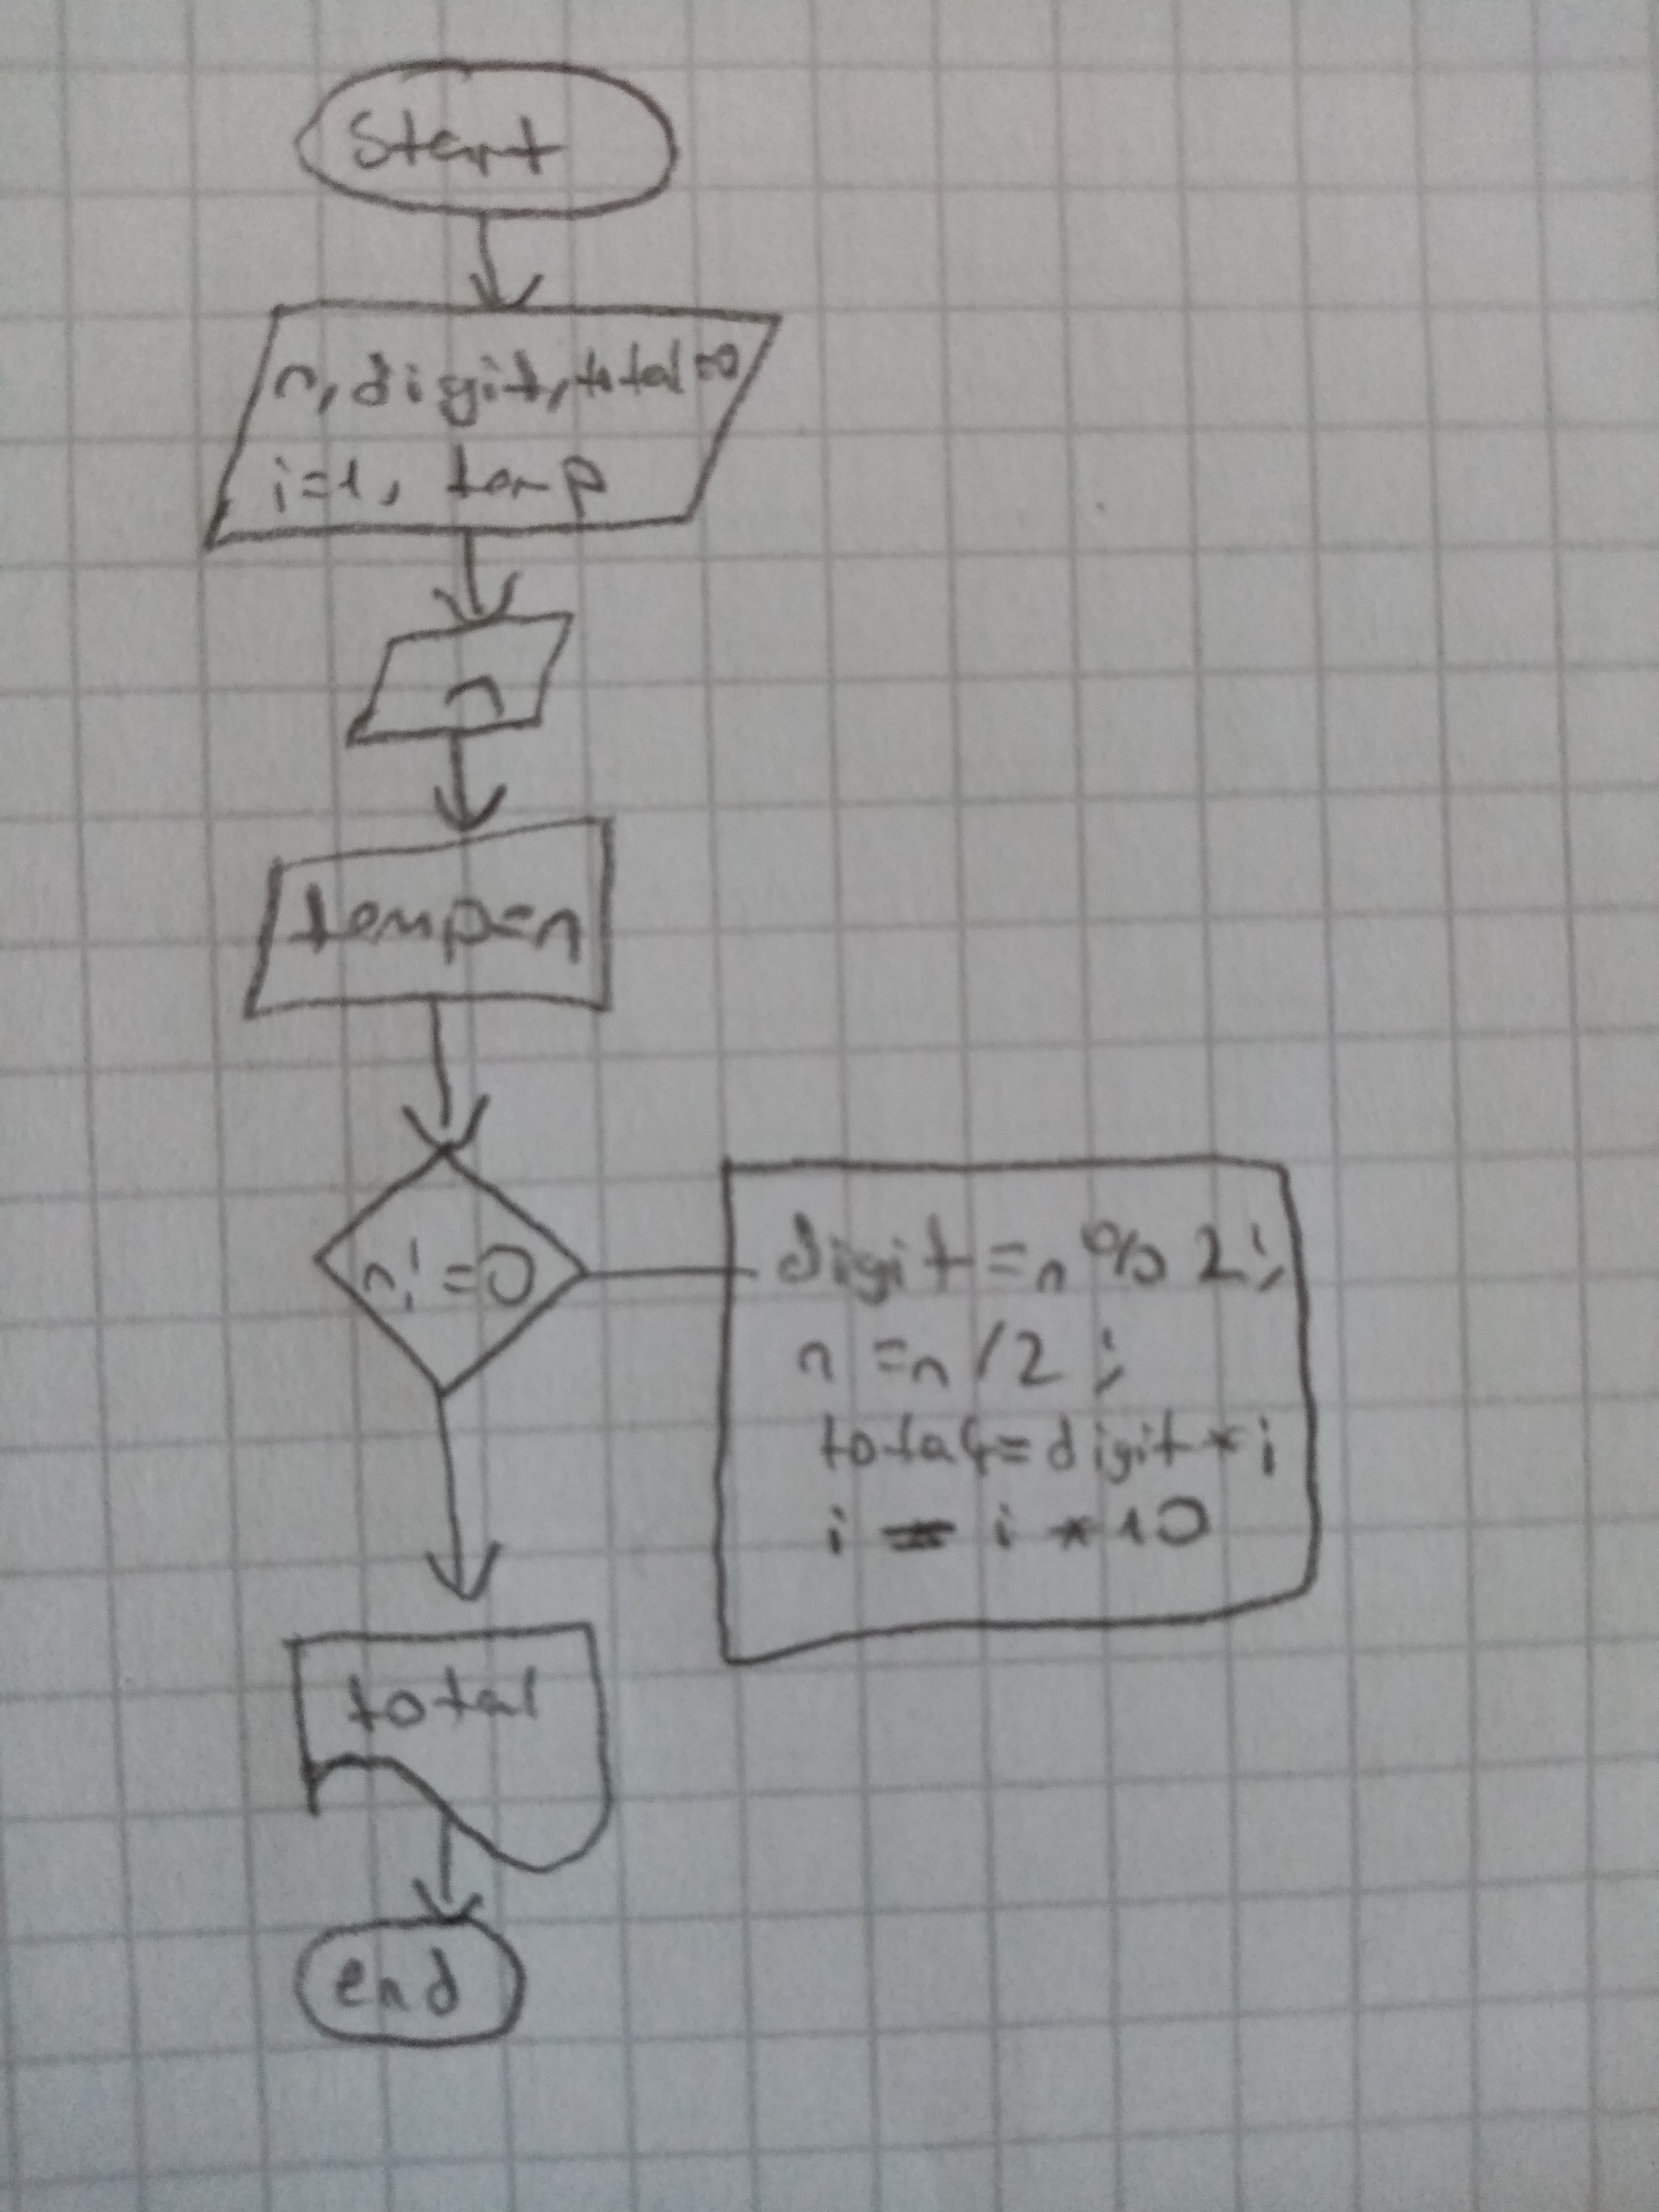 Start
n, digit, total=0
i=1, temp
n
temp=n
n!=0
digit=n%2;
n=n/2;
total+=digit*i
i=i*10
total
end